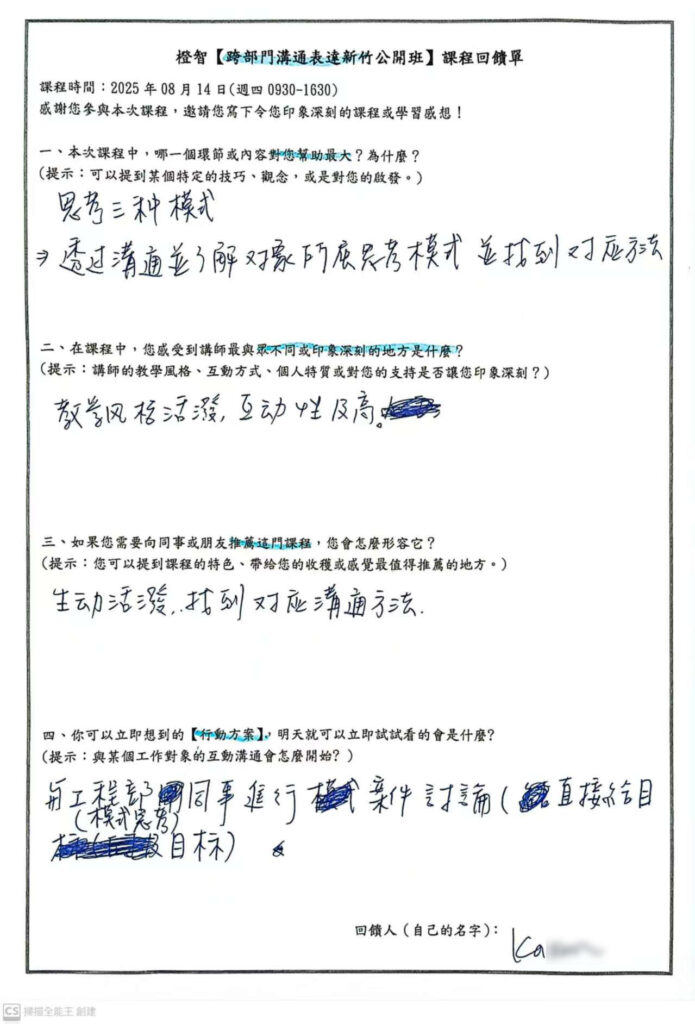 橙智【跨部門溝通表達新竹公開班】課程回饋單
課程時間：2025 年 08 月 14 日(週四 0930-1630)
感謝您參與本次課程，邀請您寫下令您印象深刻的課程或學習感想！
一、本次課程中，哪一個環節或內容對您幫助最大？為什麼？
(提示：可以提到某個特定的技巧、觀念，或是對您的啟發。)
思考三种模式
⇒ 透过溝通並了解对象所底思考模式 並找到对应方法
二、在課程中，您感受到講師最與眾不同或印象深刻的地方是什麼？
(提示：講師的教學風格、互動方式、個人特質或對您的支持是否讓您印象深刻？)
教学风格活潑，互动性及高。
三、如果您需要向同事或朋友推薦這門課程，您會怎麼形容它？
(提示：您可以提到課程的特色、帶給您的收穫或感覺最值得推薦的地方。)
生动活潑，找到对应溝通方法.
四、你可以立即想到的【行動方案】，明天就可以立即試試看的會是什麼?
(提示：與某個工作對象的互動溝通會怎麼開始？)
有工程部同事進行 案件討論(直接給目
(模式思考)
目标)
回饋人（自己的名字）：
Ka
CS 掃描全能王 創建